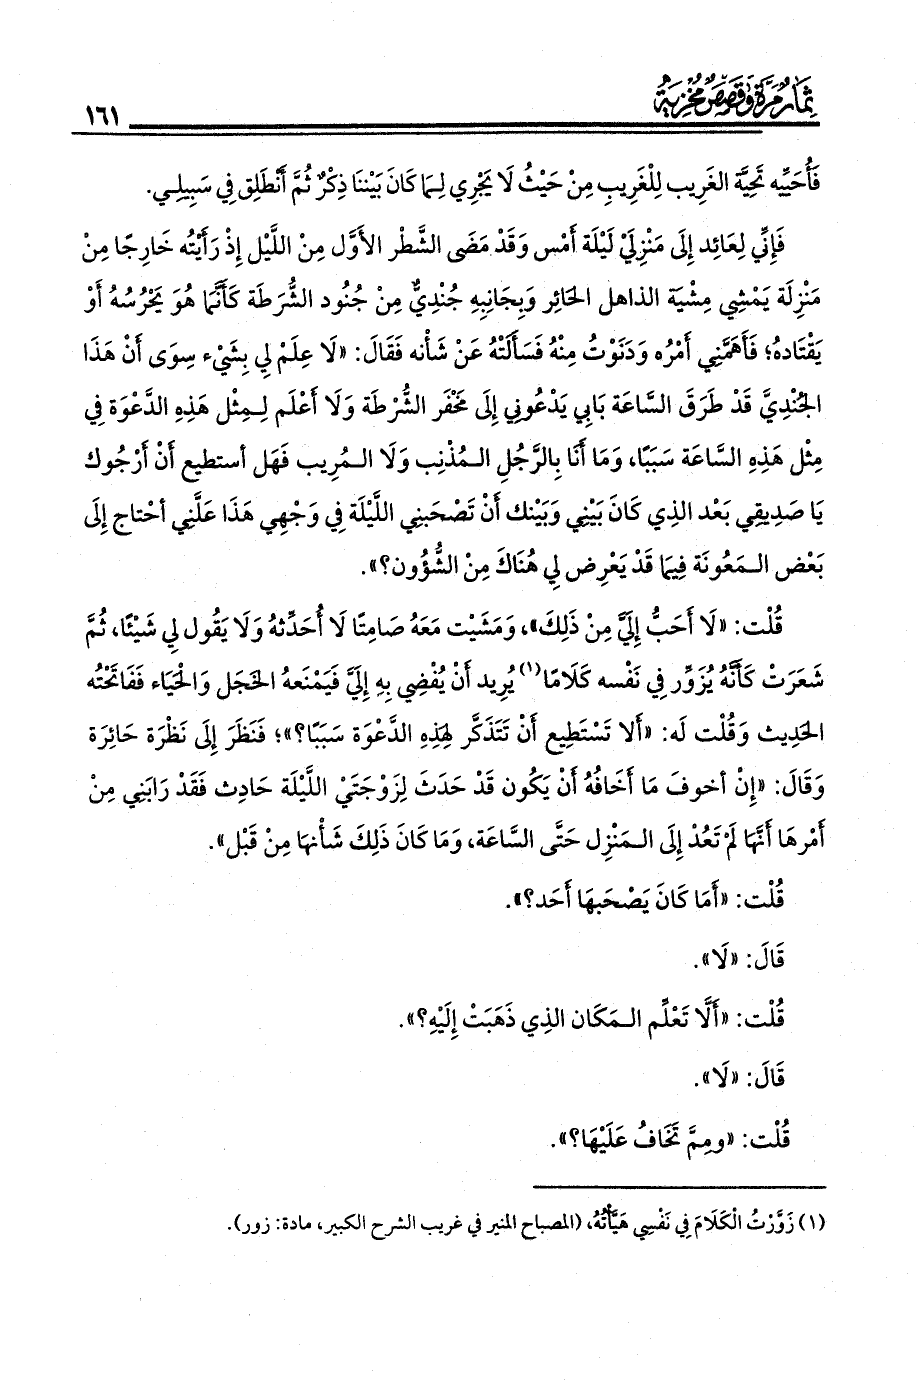 ثمار مرة وقصص مخزية
١٦١
فَأُحَيِّه تَحِيَّة الغَرِيب لِلْغَرِيبِ مِنْ حَيْثُ لَا يَجْرِي لِـمَا كَانَ بَيْنَنَا ذِكْرٌ ثُمَّ أَنْطَلِق فِي سَبِيلِـي.
فَإِنِّي لِعَائِد إِلَى مَنْزِلَيْ لَيْلَة أَمْس وَقَدْ مَضَى الشَّطْر الأَوَّل مِنْ اللَّيْل إِذْ رَأَيْتُه خَارِجًا مِنْ
مَنْزِلَة يَمْشِي مِشْيَة الذاهل الحَائِر وَبِجَانِبِهِ جُنْدِيٌّ مِنْ جُنُود الشُّرَطَة كَأَنَّمَا هُوَ يَحْرُسُهُ أَوْ
يَقْتَادهُ؛ فَأَهَمَّنِي أَمْرُه وَدَنَوْتُ مِنْهُ فَسَأَلَتْهُ عَنْ شَأْنه فَقَالَ: «لَا عِلَمْ لِي بِشَيْء سِوَى أَنْ هَذَا
الجُنْدِيَّ قَدْ طَرَقَ السَّاعَة بَابِي يَدْعُونِي إِلَى مَخْفَر الشُّرْطَة وَلَا أَعْلَم لِـمِثْل هَذِهِ الدَّعْوَة فِي
مِثْل هَذِهِ السَّاعَة سَبَبًا، وَمَا أَنَا بِالرَّجُلِ الـمُذْنِب وَلَا الـمُرِيب فَهَل أستطيع أَنْ أَرْجُوك
يَا صَدِيقِي بَعْد الذِي كَانَ بَيْنِي وَبَيْنك أَنْ تَصْحَبنِي اللَّيْلَة فِي وَجْهِي هَذَا عَلَّنِي أحْتاج إِلَى
بَعْض الـمَعُونَة فِيمَا قَدْ يَعْرِض لِي هُنَاكَ مِنْ الشُّؤُون؟».
قُلْت: «لَا أَحَبُّ إِلَيَّ مِنْ ذَلِكَ»، وَمَشَيْت مَعَهُ صَامِتًا لَا أُحَدِّثهُ وَلَا يَقُول لِي شَيْئًا، ثُمَّ
شَعَرَتْ كَأَنَّهُ يُزَوِّر فِي نَفْسه كَلَامًا(١) يُرِيد أَنْ يُفْضِي بِهِ إِلَيَّ فَيَمْنَعهُ الخَجَل وَالحَيَاء فَفَاتَحْتُه
الحَدِيث وَقُلْت لَه: «أَلا تَسْتَطِيع أَنْ تَتَذَكَّر لِهَذِهِ الدَّعْوَة سَبَبًا؟»؛ فَنَظَرَ إِلَى نَظْرَة حَائِرَة
وَقَالَ: «إِنْ أخوفَ مَا أَخَافُهُ أَنْ يَكُون قَدْ حَدَثَ لِزَوْجَتَيْ اللَّيْلَة حَادِث فَقَدْ رَابَنِي مِنْ
أَمْرهَا أَنَّهَا لَمْ تَعُدْ إِلَى الـمَنْزِل حَتَّى السَّاعَة، وَمَا كَانَ ذَلِكَ شَأْنهَا مِنْ قَبْل».
قُلْت: «أَمَا كَانَ يَصْحَبهَا أَحَد؟».
قَالَ: «لَا».
قُلْت: «أَلَّا تَعْلَم الـمَكَان الذِي ذَهَبَتْ إِلَيْهِ؟».
قَالَ: «لَا».
قُلْت: «ومِمَّ تَخَافُ عَلَيْهَا؟».
(١) زَوَّرْتُ الْكَلَامَ فِي نَفْسِي هَيَّأْتُهُ، (المصباح المنير في غريب الشرح الكبير، مادة: زور).